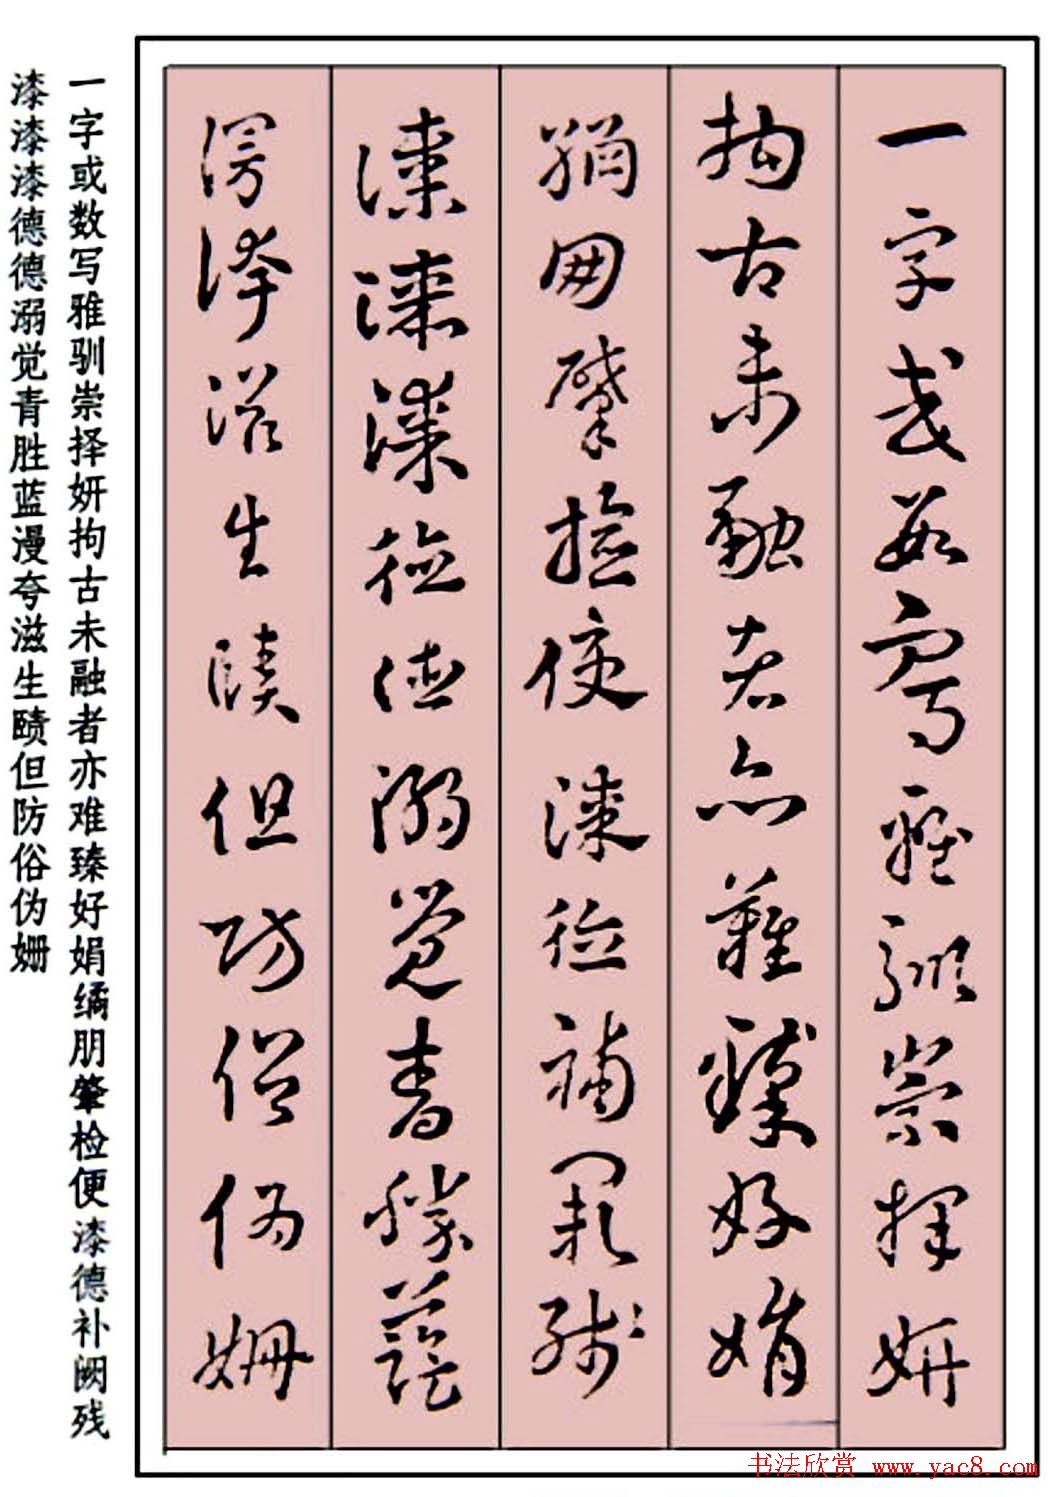 一字或數寫雅馴崇擇妍
拘古未融者亦難臻好娟
朋肇檢便漆德補闕殘
漆漆漆德德溺覺青勝藍
漫夸滋生賾但防俗偽姍
一字或数写雅驯崇择妍拘古未融者亦难臻好娟朋肇检便漆德补阙残
漆漆漆德德溺觉青胜蓝漫夸滋生赜但防俗伪姗
书法欣赏 www.yac8.com